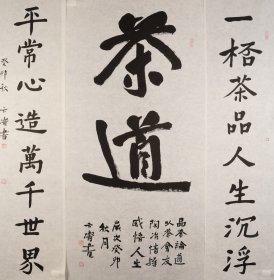 一桮茶品人生沉浮
茶道
品茶論道
以茶會友
陶冶情操
感悟人生
歲次癸卯
秋月
平常心造萬千世界
癸卯秋